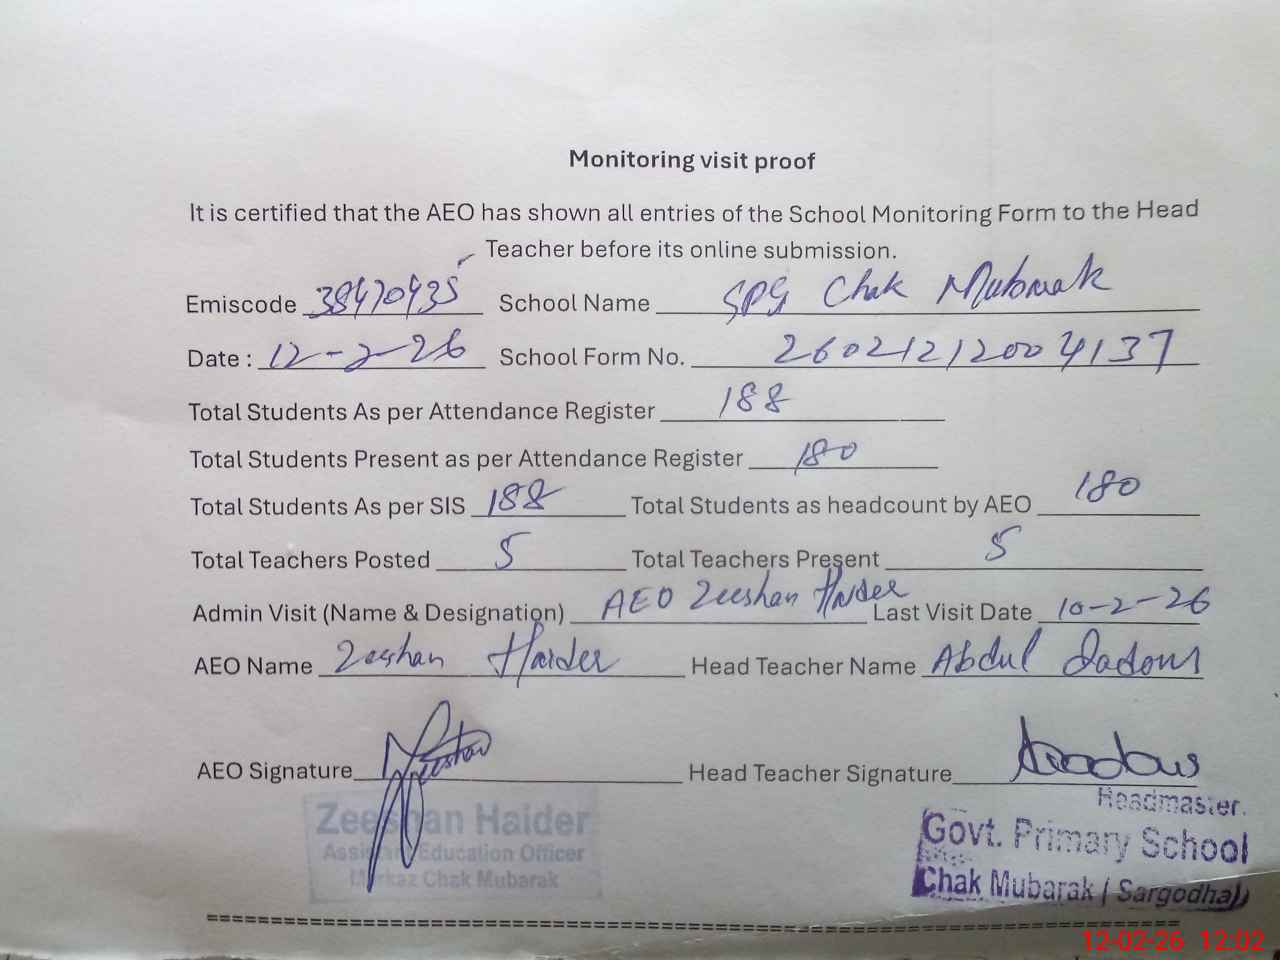 Monitoring visit proof
It is certified that the AEO has shown all entries of the School Monitoring Form to the Head
Teacher before its online submission.
Emiscode 38470935 School Name GPS Chak Mubarak
Date : 12-2-26 School Form No. 26021212004137
Total Students As per Attendance Register 188
Total Students Present as per Attendance Register 180
Total Students As per SIS 188 Total Students as headcount by AEO 180
Total Teachers Posted 5 Total Teachers Present 5
Admin Visit (Name & Designation) AEO Zeeshan Haider Last Visit Date 10-2-26
AEO Name Zeeshan Haider Head Teacher Name Abdul
AEO Signature Head Teacher Signature
Zeeshan Haider
Assistant Education Officer
Markaz Chak Mubarak
Headmaster.
Govt. Primary School
Chak Mubarak (Sargodha)
12-02-26 12:02